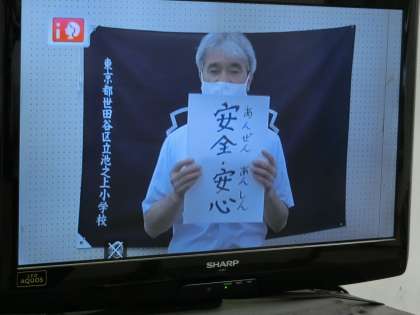 東京都世田谷区立池之上小学校
あんぜん
安全・安心
あんしん
SHARP
AQUOS